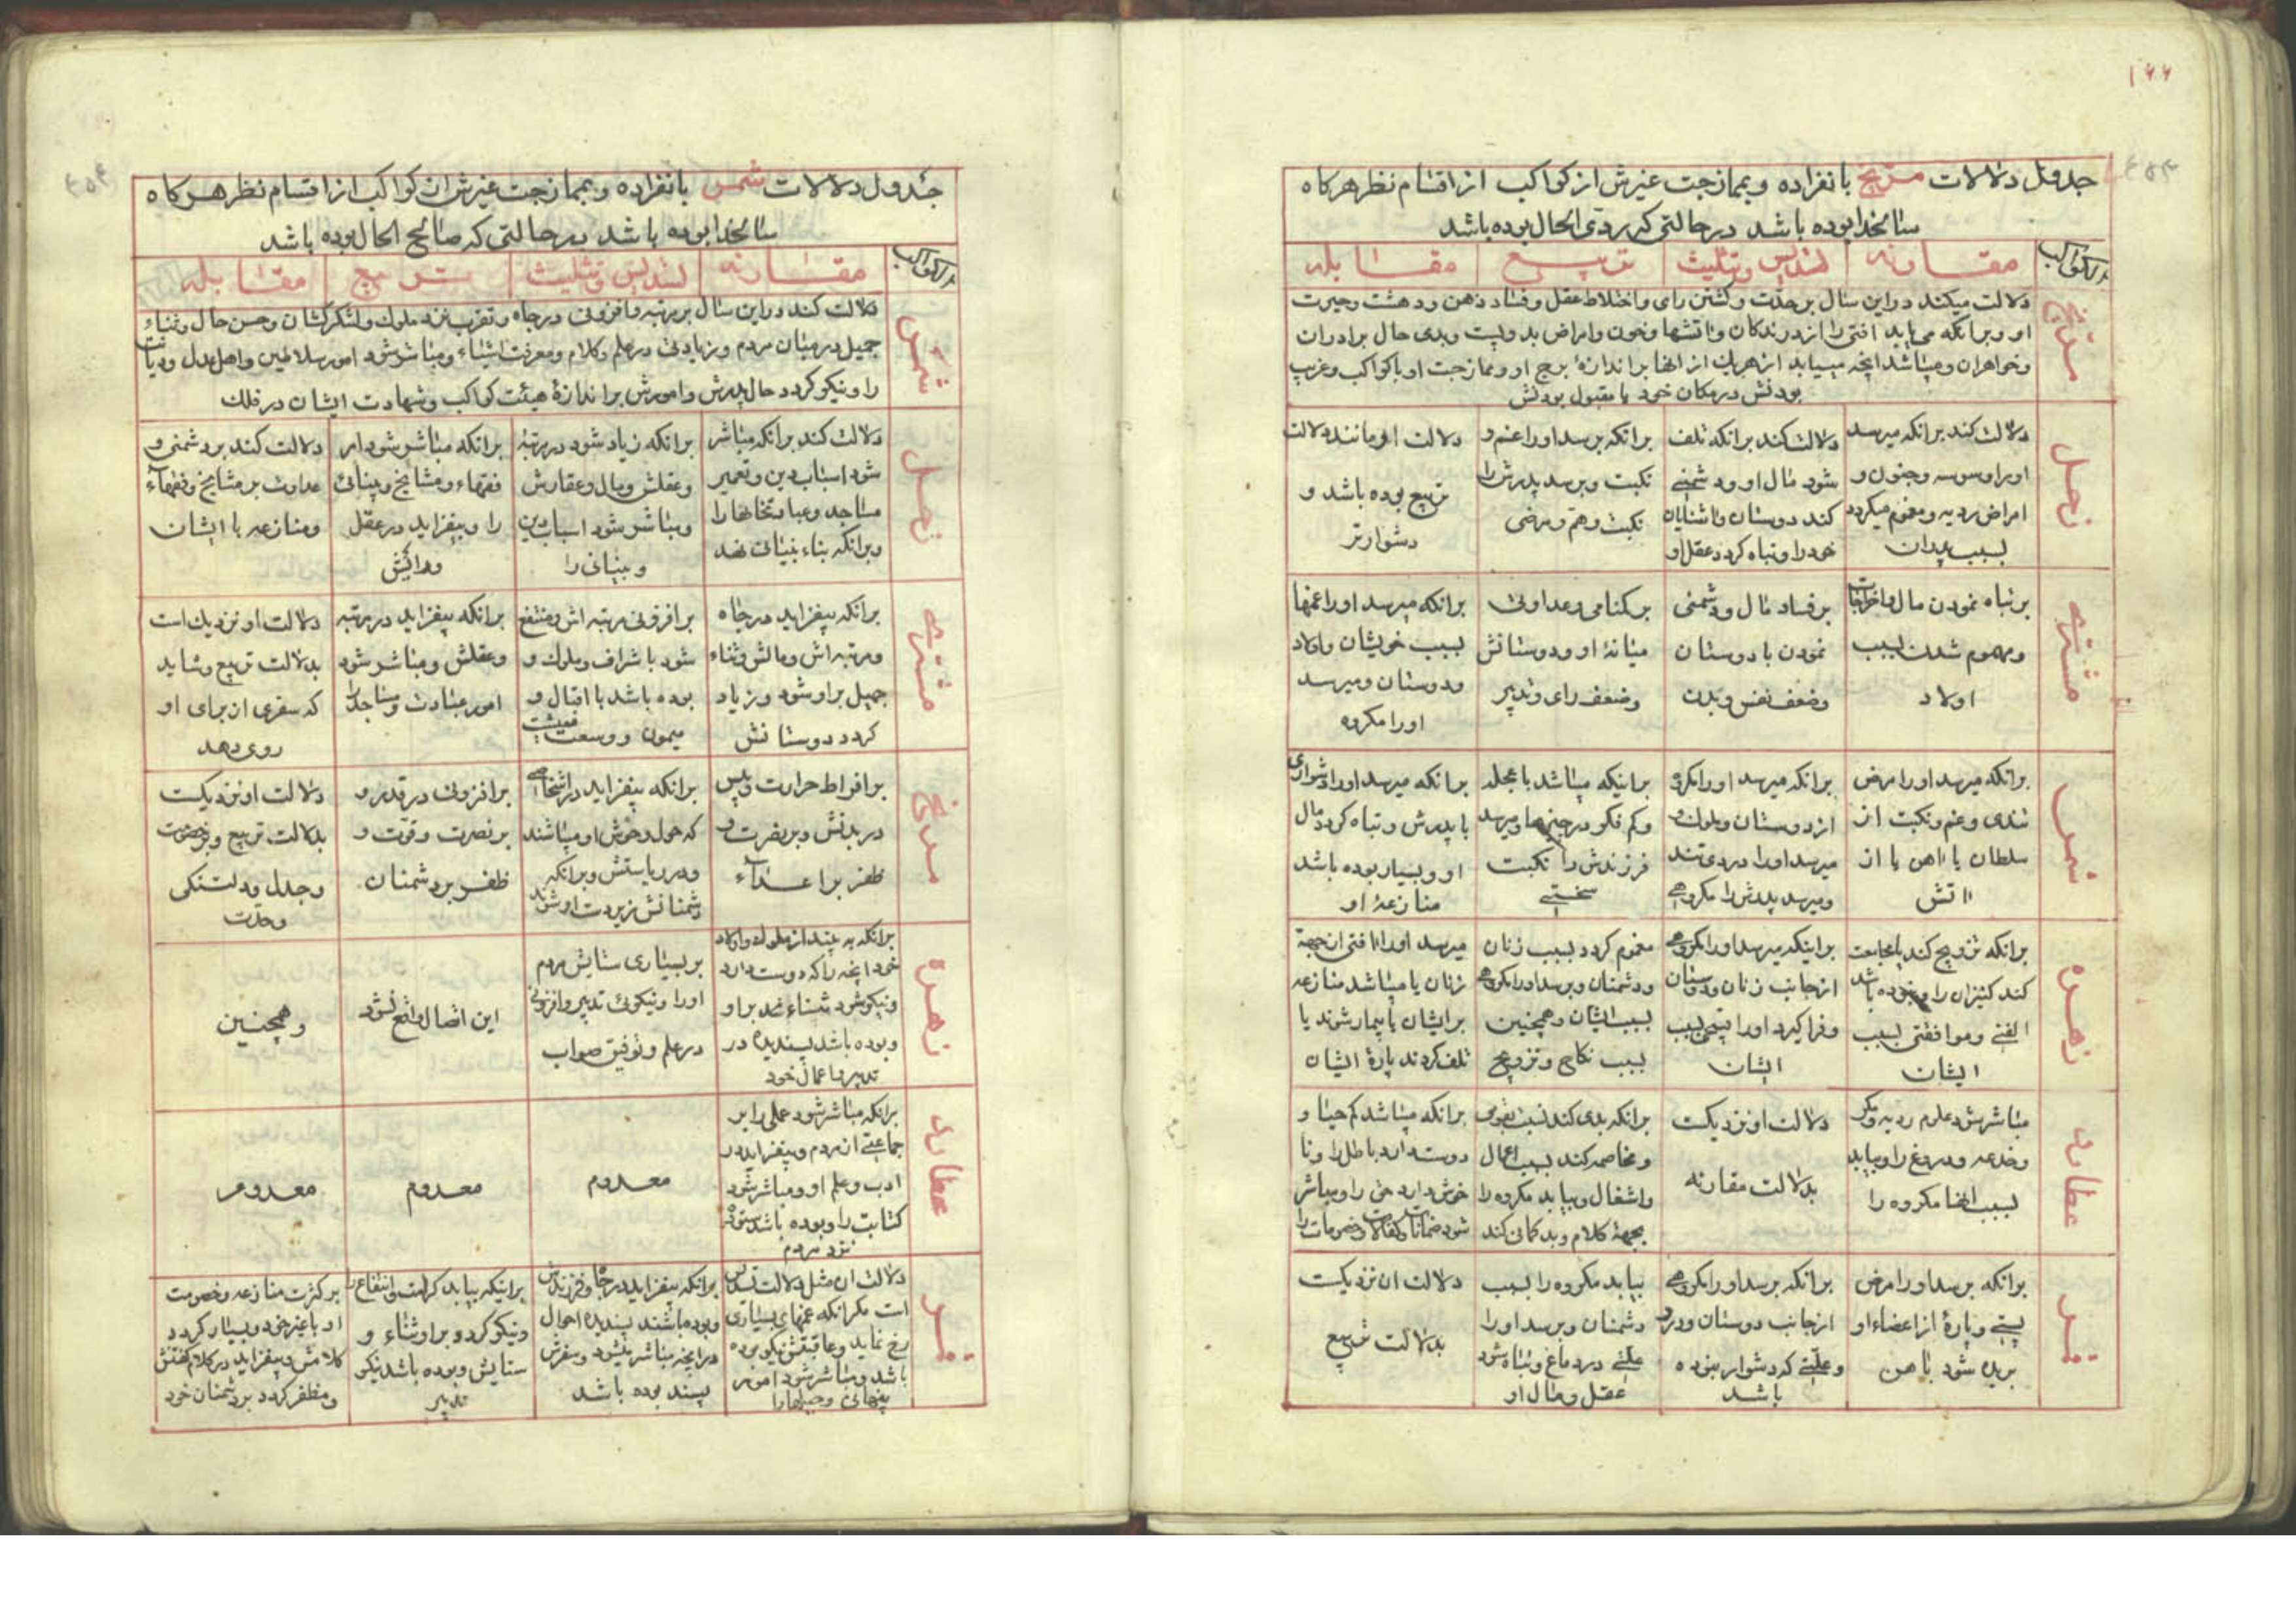 ۱۶۶
جدول دلالات مریخ بانفراده و بممازجت غیرش از کواکب از اقسام نظر هرکاه
سالخدا بوده باشد در حالتی که ردی الحال بوده باشد
الکواکب
مقارنه
تسدیس وتثلیث
تربیع
مقابله
مریخ
دلالت میکند در این سال بر حدت و کشتن رای و اختلاط عقل و فساد ذهن و دهشت وحیرت
او و برانکه می یابد افتی را از درندکان واتشها وخون وامراض بد وپست وبدی حال برادران
وخواهران ومیباشد انچه میباید از هریك از انها بر اندازۀ برج او وممازجت او با کواکب وغریب
بودنش در مکان خود یا مقبول بودنش
زحل
دلالت کند برانکه میرسد
اورا وسوسه وجنون و
امراض ردیه ومغموم میکردد
بسبب پدران
دلالت کند برانکه تلف
شود مال او ودشمنی
کند دوستان واشنایان
خود را وتباه کردد عقل او
برانکه برسد اورا غم و
نکبت وبرسد پدرش را
نکبت وهم ومرضی
دلالت او مانند دلالت
تربیع بوده باشد و
دشوارتر
مشتری
بر تباه نمودن مال واخراجات
ومهموم شدن بسبب
اولاد
بر فساد مال ودشمنی
نمودن با دوستان
وضعف نفس وبدن
بر کمنامی وعداوتی
میانۀ او ودوستانش
وضعف رای وتدبیر
برانکه میرسد اورا غمها
بسبب خویشان واولاد
ودوستان ومیرسد
اورا مکروه
شمس
برانکه میرسد اورا مرض
تندی وغم ونکبت از
سلطان یا اهن یا از
اتش
برانکه میرسد اورا مکروه
از دوستان وملوك و
میرسد اورا درد تند
ومیرسد پدرش را مکروهی
براینکه میباشد با عجله
وکم فکر در چیزها ومیرسد
فرزندش را نکبت
سختی
برانکه میرسد اورا دشواری
با پدرش وتباه کردد مال
او وبسیار بوده باشد
منازعۀ او
زهره
برانکه تزویج کند یا مجامعت
کند کنیزان را ونبوده باشد
الفتی وموافقتی بسبب
ایشان
براینکه میرسد اورا مکروهی
از جانب زنان ودوستان
وفرا کیرد اورا قبحی بسبب
ایشان
مغموم کردد بسبب زنان
ودشمنان وبرسد اورا مکروهی
بسبب ایشان وهمچنین
بسبب نکاح وتزویج
میرسد اورا افتی از جهة
زنان یا میباشد منازعه
برایشان یا بیمار شوند یا
تلف کردند پارۀ ایشان
عطارد
مباشر شود علوم ردیه ومکر
وخدعه ودروغ را وبیابد
بسبب انها مکروه را
دلالت او نزدیکست
بدلالت مقارنه
برانکه بدی کند نسبت بقومی
ومخاصمه کند بسبب اعمال
واشغال وبیابد مکروه را
بجهة کلام وبد کمانی کند
برانکه میباشد کم حیا و
دوست دارد باطل را ونا
خوش دارد حق را ومباشر
شود ضمانات وکفالات وخصومات را
قمر
برانکه برسد اورا مرض
پستی وپارۀ از اعضاء او
بریده شود باهن
برانکه برسد اورا مکروهی
از جانب دوستان ودرد
وعلتی که دشوار بوده
باشد
بیابد مکروه را بسبب
دشمنان وبرسد اورا
علتی در دماغ وتباه شود
عقل ومال او
دلالت ان نزدیکست
بدلالت تربیع
جدول دلالات شمس بانفراده وبممازجت غیرش از کواکب از اقسام نظر هرکاه
سالخدا بوده باشد در حالتی که صالح الحال بوده باشد
الکواکب
مقارنه
تسدیس وتثلیث
تربیع
مقابله
شمس
دلالت کند در این سال بر مرتبه وافزونی در جاه وتقرب نزد ملوك ولشکرکشان وحسن حال وثناء
جمیل در میان مردم وزیادتی در علم وکلام ومعرفت اشیاء ومباشر شود امور سلاطین واهل عدل ودیانت
را ونیکو کردد حال پدرش وامورش بر اندازۀ هیئت کواکب وشهادت ایشان در فلك
زحل
دلالت کند برانکه مباشر
شود اسباب دین وتعمیر
مساجد وعبادتخانها را
وبرانکه بناء بنیانی نهد
برانکه زیاد شود در مرتبۀ
وعقلش ومال وعقارش
ومباشر شود اسباب دین
وبنیانی را
برانکه مباشر شود امر
فقهاء ومشایخ وبنیانی
را وبیفزاید در عقل
ورایش
دلالت کند بر دشمنی و
عداوت بر مشایخ وفقهاء
ومنازعه با ایشان
مشتری
برانکه بیفزاید در جاه
ومرتبه اش ومالش وثناء
جمیل بر او شود وزیاد
کردد دوستانش
بر افزونی مرتبه اش ومنتفع
شود باشراف وملوك و
بوده باشد با اقبال و
میمون ووسعت معیشت
برانکه بیفزاید در مرتبه
وعقلش ومباشر شود
امور عبادت ومساجد را
دلالت او نزدیك است
بدلالت تربیع وشاید
که سفری از برای او
روی دهد
مریخ
بر افراط حرارت ویبس
در بدنش وبر نصرت و
ظفر بر اعداء
برانکه بیفزاید در اشخاصی
که حول وحوش او میباشند
ودر ریاستش وبرانکه
دشمنانش زیر دست او شوند
بر افزونی در قدر و
بر نصرت وقوت و
ظفر بر دشمنان
دلالت او نزدیکست
بدلالت تربیع وبر خصومت
وجدل ودلتنکی
وحدت
زهره
برانکه به بیند از ملوك واولاد
خود انچه را که دوست دارد
ونیکو شود ثناء مردم بر او
وبوده باشد پسندیده در
تدبیر واعمال خود
بر بسیاری ستایش مردم
اورا ونیکوئی تدبیر وافزونی
در علم وتوفیق صواب
این اتصال واقع نشود
وهمچنین
عطارد
برانکه مباشر شود عملی را بر
جماعتی از مردم وبیفزاید در
ادب وعلم او ومباشر شود
کتابت را وبوده باشد ستوده
نزد مردم
معدوم
معدوم
معدوم
قمر
دلالت ان مثل دلالت تسدیس
است مکر انکه غمهای بسیاری
رخ نماید وعاقبتش نیکو بوده
باشد ومباشر شود امور
پنهانی وحیلها را
برانکه بیفزاید در جاه وفرزندش
وبوده باشند پسندیده احوال
در انچه مباشر میشود وسفرش
پسند بوده باشد
براینکه بیابد کرامت وانتفاع را
ونیکو کردد بر او ثناء و
ستایش وبوده باشد نیکو
تدبیر
بر کثرت منازعه وخصومت
او با غیر خود وبسیار کردد
کلامش وبیفزاید در کلام کفتنش
ومظفر کردد بر دشمنان خود